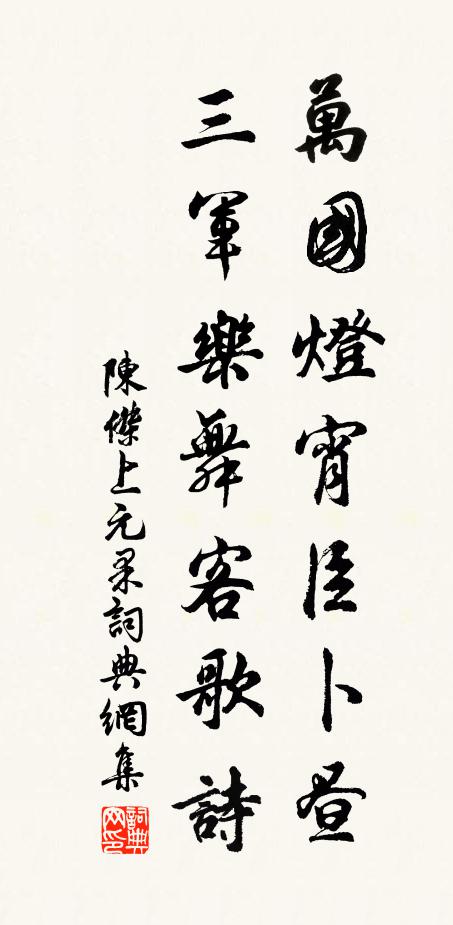 萬國燈宵臣卜晝
三軍樂舞客歌詩
陳傑上元 采詞典網集
詞典网印